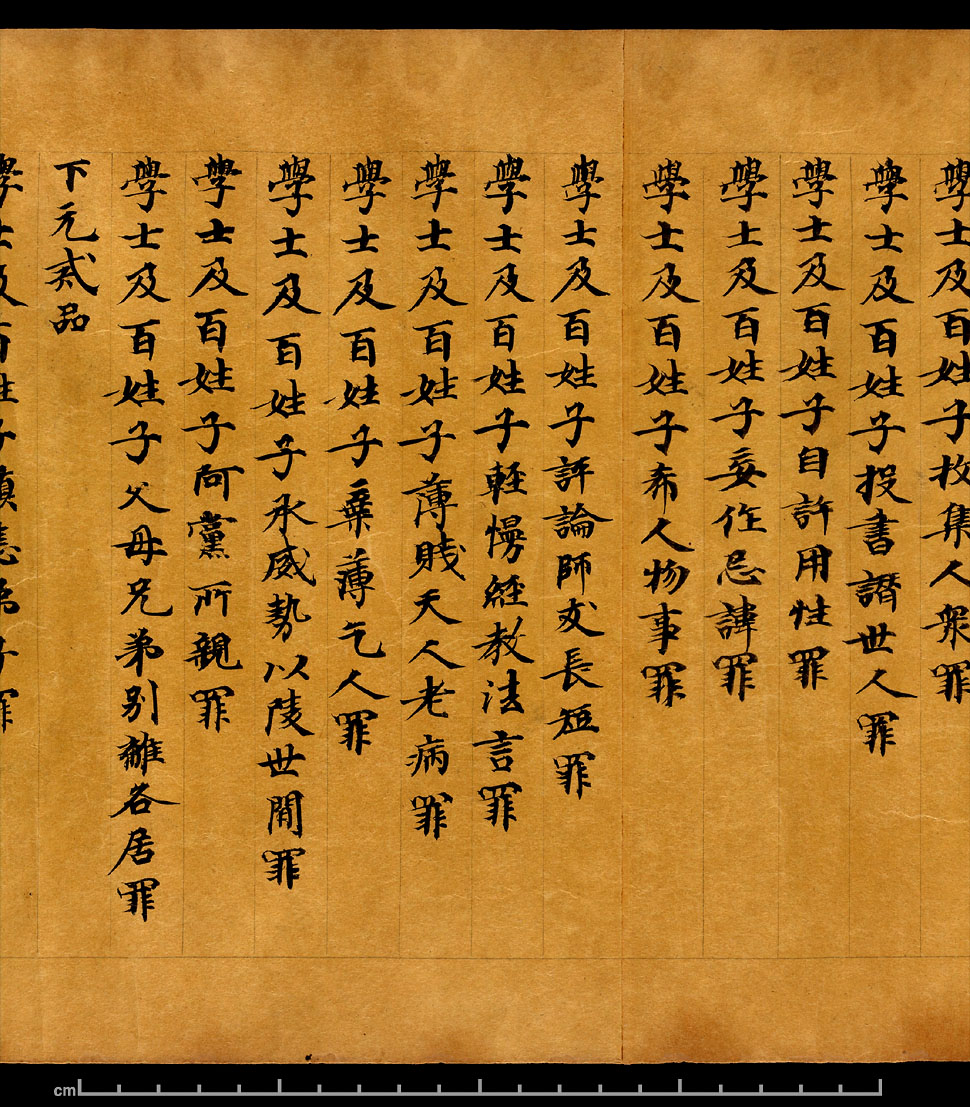 學士及百姓子收集人衆罪
學士及百姓子投書譖世人罪
學士及百姓子自許用性罪
學士及百姓子妄作忌諱罪
學士及百姓子希人物事罪
學士及百姓子評論師友長短罪
學士及百姓子輕慢經教法言罪
學士及百姓子薄賤天人老病罪
學士及百姓子棄薄乞人罪
學士及百姓子承威勢以陵世間罪
學士及百姓子阿黨所親罪
學士及百姓子父母兄弟別離各居罪
下元貳品
學士及百姓子嗔恚弟子罪
cm